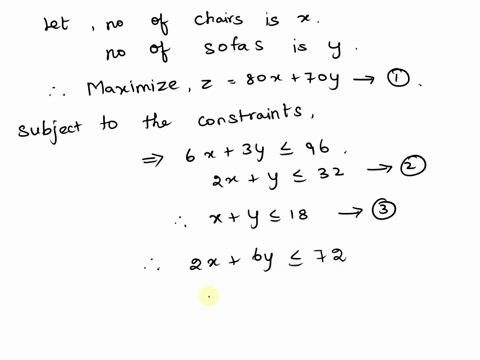 Let, no of chairs is x.
no of sofas is y.
∴ Maximize, z = 80x + 70y → ①.
subject to the constraints,
⇒ 6x + 3y ≤ 96.
2x + y ≤ 32 → ②
∴ x + y ≤ 18 → ③
∴ 2x + 6y ≤ 72